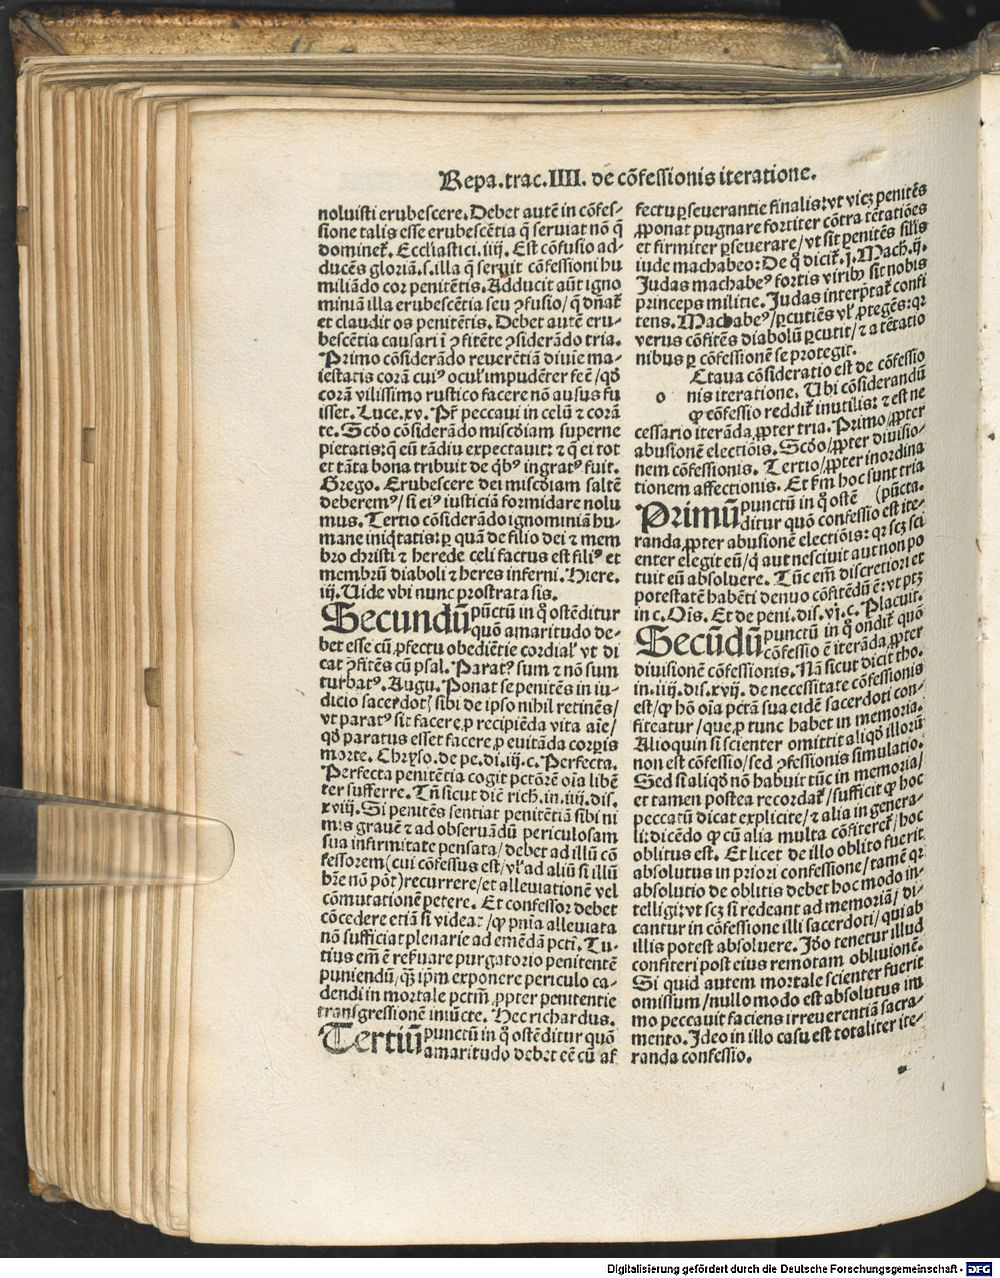 Repa.trac.IIII. de cõfessionis iteratione.
noluisti erubescere. Debet autẽ in cõfes-
sione talis esse erubescẽtia q̃ seruiat nõ q̃
dominet᷑. Ecclĩastici. iiij. Est cõfusio ad-
ducẽs gloriã. s. illa q̃ seruit cõfessioni hu
miliãdo cor penitẽtis. Adducit aũt igno
miniã illa erubescẽtia seu ꝯfusio / q̃ dñat᷑
et claudit os penitẽtis. Debet autẽ eru-
bescẽtia causari ĩ ꝯfitẽte ꝯsiderãdo tria.
Primo cõsiderãdo reuerẽtiã diuĩe ma-
iestatis corã cuiꝰ oculĩ impudẽter fec̃ / qđ
corã vilissimo rustico facere nõ ausus fu
isset. Luce. xv. Pr̃ peccaui in celũ ⁊ corã
te. Scđo cõsiderãdo miscđiam superne
pietatis: q̃ eũ tãdiu expectauit: ⁊ q̃ ei tot
et tãta bona tribuit de q̃bꝰ ingratꝰ fuit.
Grego. Erubescere dei miscđiam saltẽ
deberemꝰ / si eiꝰ iusticiã formidare nolu
mus. Tertio cõsiderãdo ignominiã hu-
mane iniq̃tatis: ꝑ quã de filio dei ⁊ mem
bro christi ⁊ herede celi factus est filiꝰ et
membrũ diaboli ⁊ heres inferni. Hiere.
iij. Uide vbi nunc prostrata sis.
Secundũ pũctũ in q̊ ostẽditur
quõ amaritudo de-
bet esse cũ ꝓfectu obediẽtie cordial᷑ vt di
cat ꝯfitẽs cũ psal. Paratꝰ sum ⁊ nõ sum
turbatꝰ. Augu. Ponat se penitẽs in iu-
dicio sacerdot᷑ / sibi de ipso nihil retinẽs /
vt paratꝰ sit facere ꝓ recipiẽda vita aĩe /
qđ paratus esset facere ꝓ euitãda corꝑis
morte. Chryso. de pe. di. iij. c. Perfecta.
Perfecta penitẽtia cogit pctõrẽ oĩa libẽ
ter sufferre. Tñ sicut dic̃ rich. in. iiij. dis.
xviij. Si penitẽs sentiat penitẽtiã sibi ni
mis grauẽ ⁊ ad obseruãdũ periculosam
sua infirmitate pensata / debet ad illũ cõ
fessorem (cui cõfessus est / vl᷑ ad aliũ si illũ
hr̃e nõ põt) recurrere / et alleuiationẽ vel
cõmutationẽ petere. Et confessor debet
cõcedere etiã si videat / ꝙ pñia alleuiata
nõ sufficiat plenarie ad emẽdã pcti. Tu-
tius em̃ ẽ reseruare purgatorio penitentẽ
puniendũ / q̃ ip̃m exponere periculo ca-
dendi in mortale pctm̃ ꝓpter penitentie
transgressionẽ iniũcte. Hec richardus.
Tertiũ punctũ in q̊ ostẽditur quõ
amaritudo debet eẽ cũ af
fectu ꝑseuerantie finalis: vt vicꝫ penitẽs
ꝓponat pugnare fortiter cõtra tẽtatiões
et firmiter ꝑseuerare / vt sit penitẽs silis
iude machabeo: De q̊ dicit᷑. j. Mach. ij.
Judas machabeꝰ fortis viribꝰ sit nobis
princeps militie. Judas interp̃tat᷑ confi
tens. Machabeꝰ / ꝑcutiẽs vl᷑ ꝓtegẽs: qꝛ
verus cõfitẽs diabolũ ꝑcutit / ⁊ a tẽtatio
nibus ꝑ cõfessionẽ se protegit.
o Ctaua cõsideratio est de cõfessio
nis iteratione. Ubi cõsiderandũ
ꝙ cõfessio reddit᷑ inutilis: ⁊ est ne
cessario iterãda ꝓpter tria. Primo / ꝓpter
abusionẽ electiõis. Scđo / ꝓpter diuisio-
nem cõfessionis. Tertio / ꝓpter inordina
tionem affectionis. Et ẜm hoc sunt tria
(pũcta.
Primũ punctũ in q̊ ostẽ
ditur quõ confessio est ite-
randa ꝓpter abusionẽ electiõis: qꝛ scꝫ sci
enter elegit eũ / q̃ aut nesciuit aut non po
tuit eũ absoluere. Tũc em̃ discretiori et
potestatẽ habẽti denuo cõfitẽdũ ẽ: vt ptꝫ
in c. Oĩs. Et de peni. dis. vj. c. Placuit.
Secũdũ punctũ in q̊ ondit᷑ quõ
confessio ẽ iterãda ꝓpter
diuisionẽ cõfessionis. Nã sicut dicit tho.
in. iiij. dis. xvij. de necessitate cõfessionis
est / ꝙ hõ oĩa pctã sua eidẽ sacerdoti con-
fiteatur / que ꝓ tunc habet in memoria.
Alioquin si scienter omittit aliqđ illorũ
non est cõfessio / sed ꝯfessionis simulatio.
Sed si aliqđ nõ habuit tũc in memoria /
et tamen postea recordat᷑ / sufficit ꝙ hoc
peccatũ dicat explicite / ⁊ alia in genera-
li: dicẽdo ꝙ cũ alia multa cõfiteret᷑ / hoc
oblitus est. Et licet de illo oblito fuerit
absolutus in priori confessione / tamẽ qꝛ
absolutio de oblitis debet hoc modo in-
telligi: vt scꝫ si redeant ad memoriã / di-
cantur in cõfessione illi sacerdoti / qui ab
illis potest absoluere. Jđo tenetur illud
confiteri post eius remotam obliuionẽ.
Si quid autem mortale scienter fuerit
omissum / nullo modo est absolutus im
mo peccauit faciens irreuerentiã sacra-
mento. Jdeo in illo casu est totaliter ite-
randa confessio.
Digitalisierung gefördert durch die Deutsche Forschungsgemeinschaft - DFG